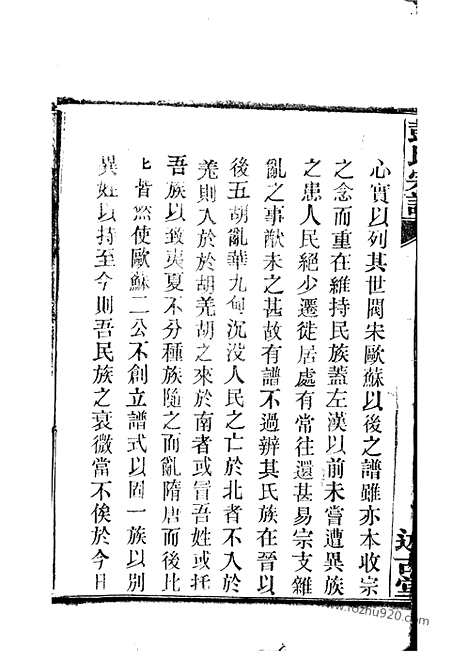 彭氏宗譜
心實以列其世閥宋歐蘇以後之譜雖亦本收宗
之念而重在維持民族蓋左漢以前未嘗遭異族
之患人民絕少遷徙居處有常往還甚易宗支雜
亂之事猷未之甚故有譜不過辨其氏族在晉以
後五胡亂華九甸沉沒人民之亡於北者不入於
羌則入於於胡羌胡之來於南者或冒吾姓或托
吾族以致夷夏不分種族隨之而亂隋唐而後比
比皆然使歐蘇二公不創立譜式以固一族以別
異姓以持至今則吾民族之衰微當不俟於今日
述古堂
www.fozhu920.com